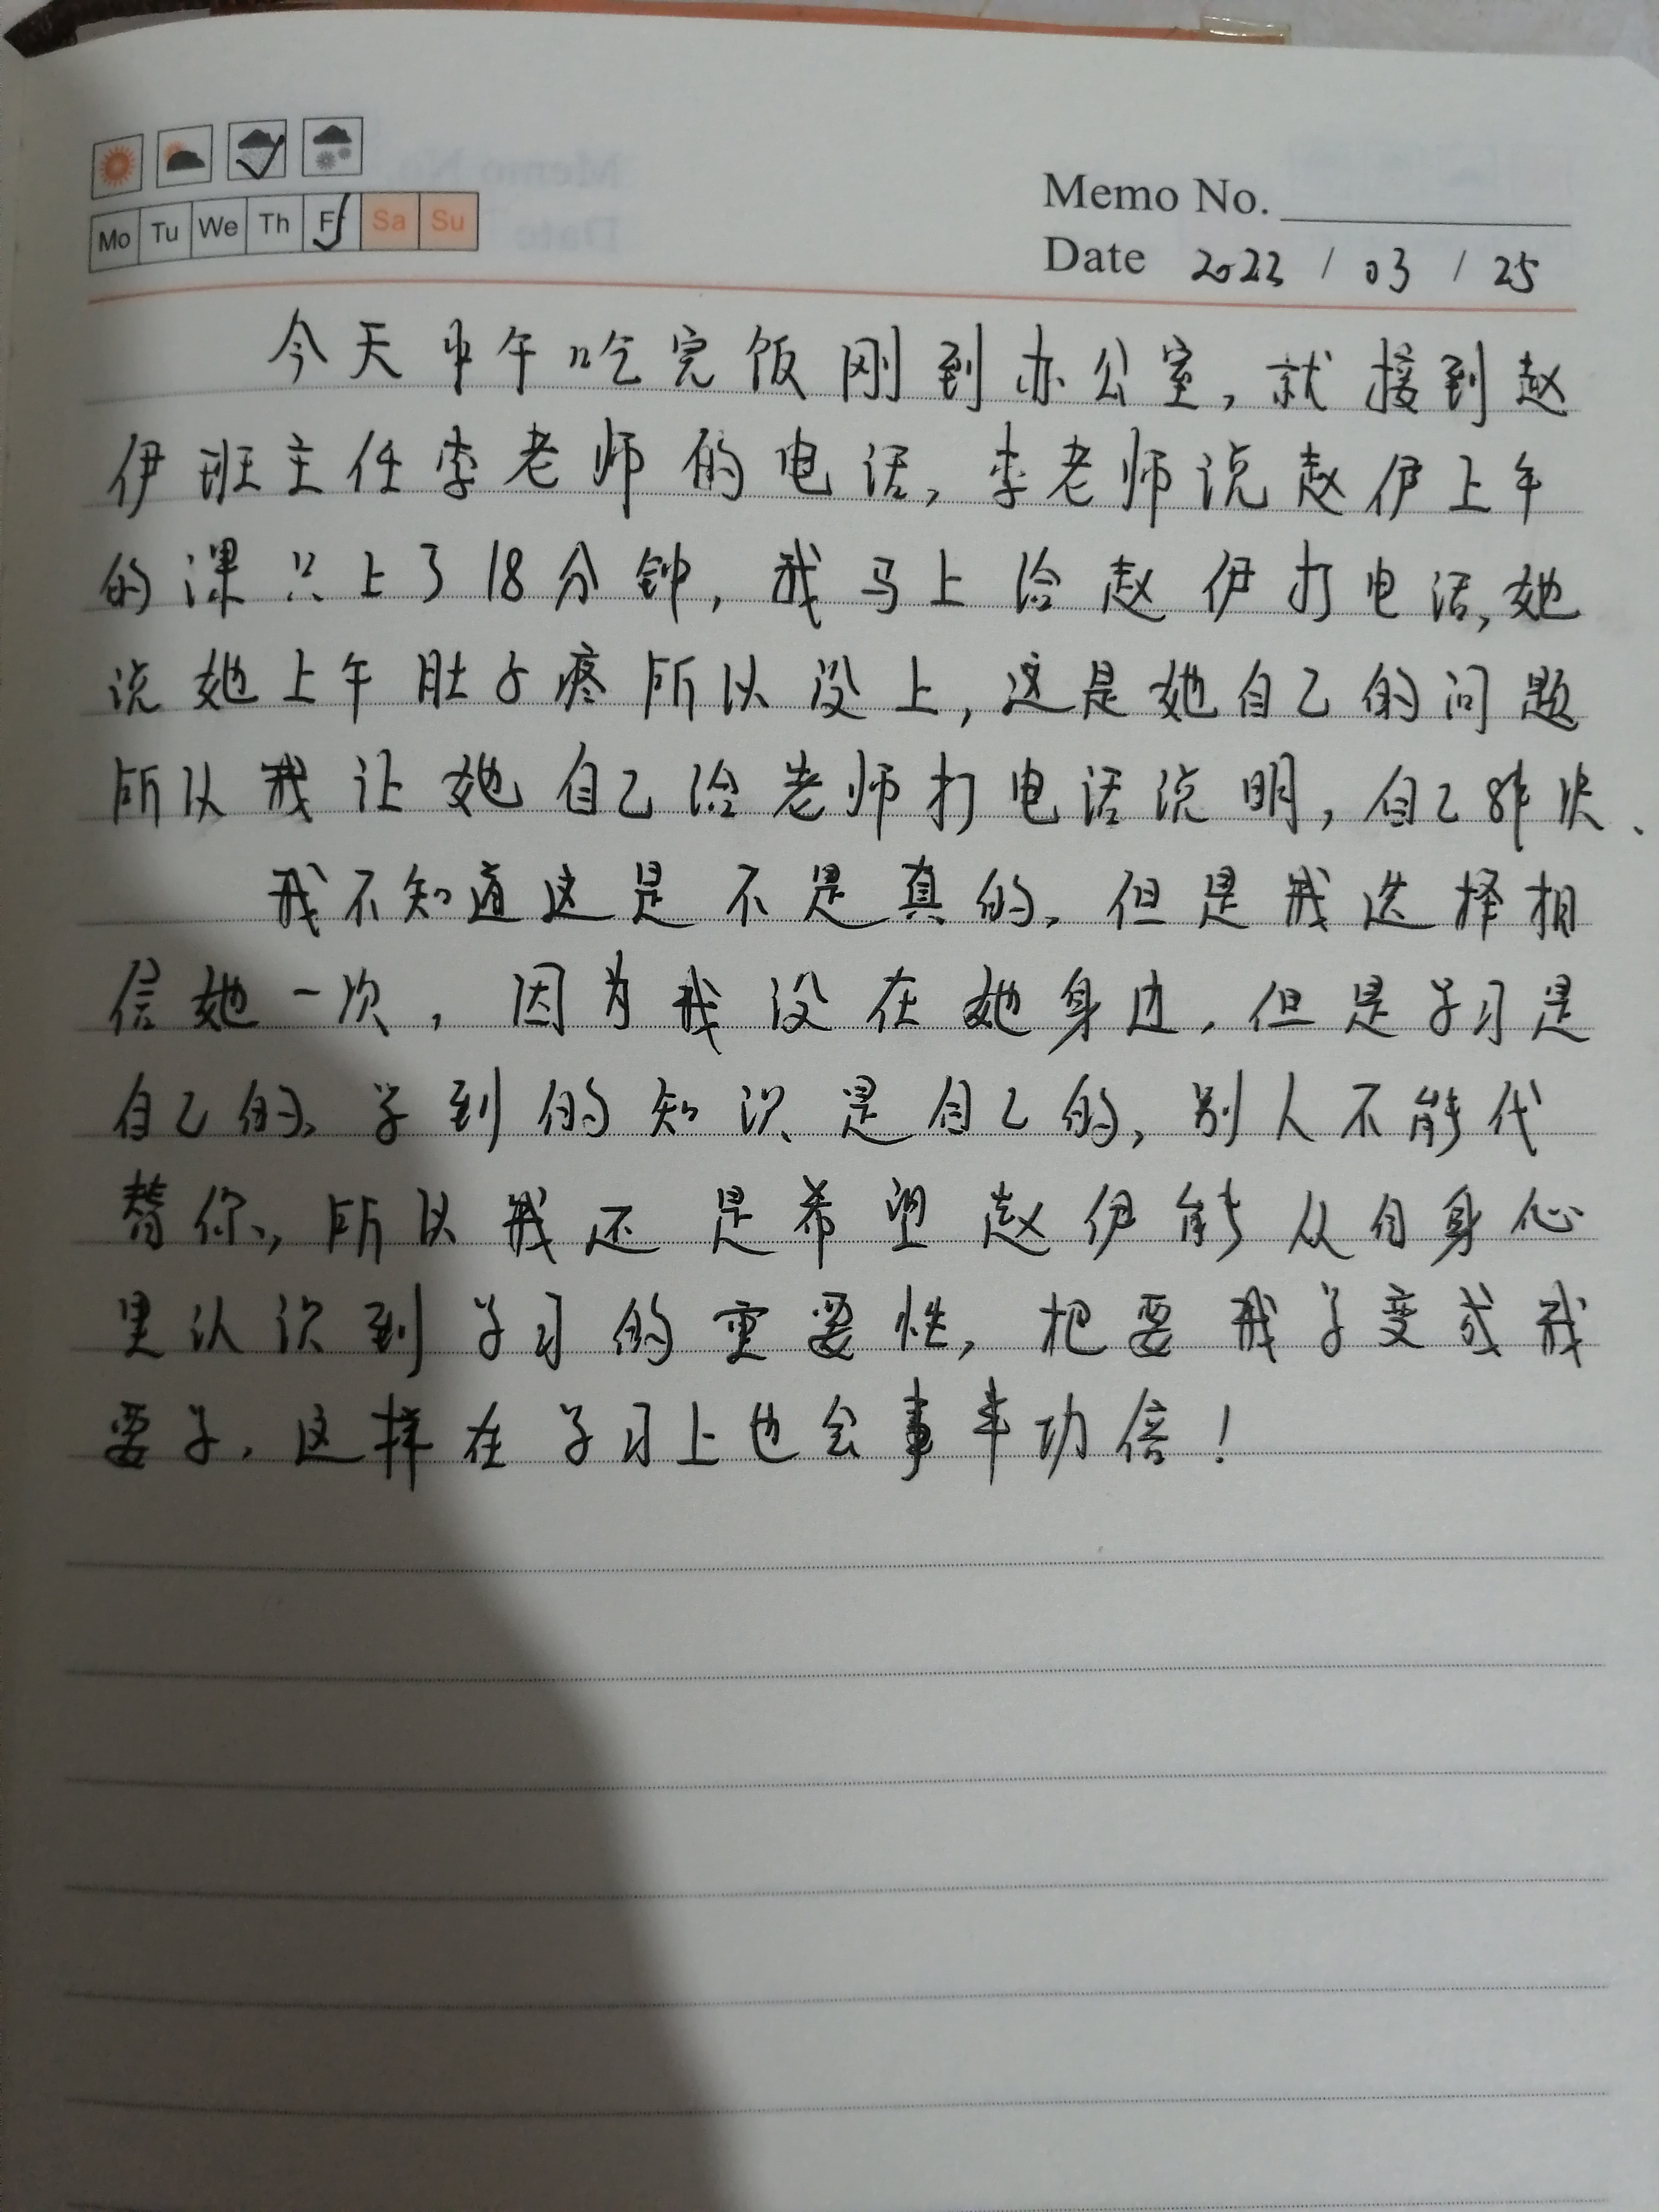 Mo Tu We Th Fr Sa Su
Memo No.
Date 2022 / 03 / 25
今天中午吃完饭刚到办公室,就接到赵
伊班主任李老师的电话,李老师说赵伊上午
的课只上了18分钟,我马上给赵伊打电话,她
说她上午肚子疼所以没上,这是她自己的问题
所以我让她自己给老师打电话说明,自己解决、
我不知道这是不是真的,但是我选择相
信她一次,因为我没在她身边,但是学习是
自己的、学到的知识是自己的,别人不能代
替你,所以我还是希望赵伊能从自身心
里认识到学习的重要性,把要我学变成我
要学,这样在学习上也会事半功倍!